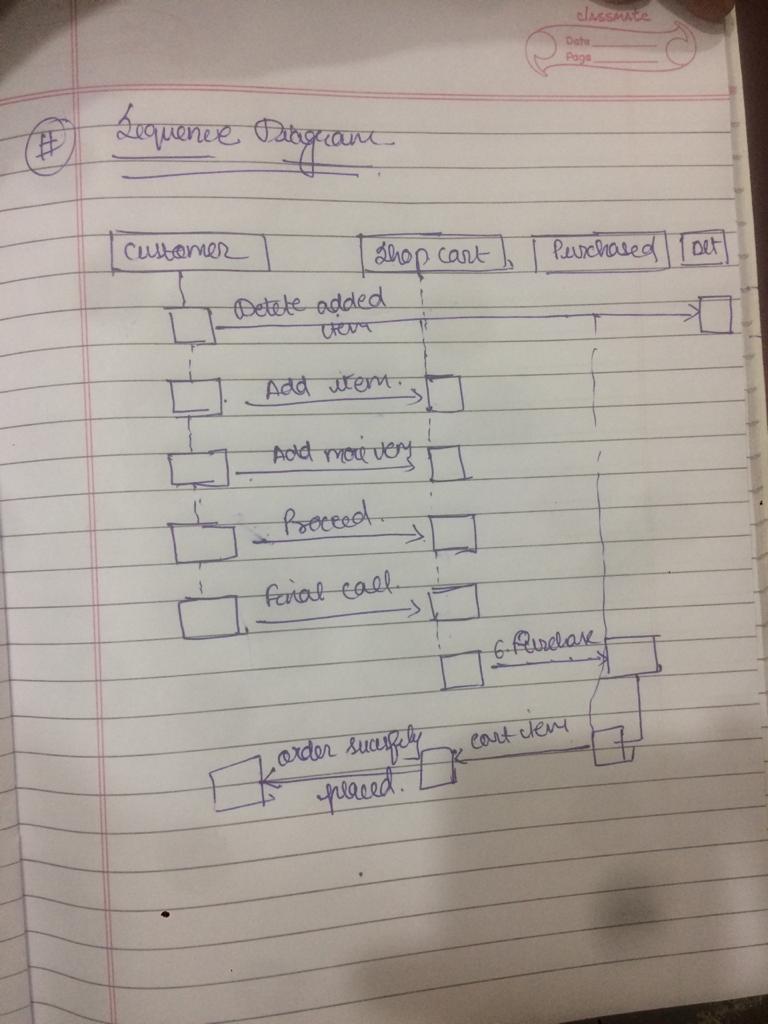 classmate
Date
Page
# Sequence Diagram
Customer Shop cart Purchased Del
Delete added
item
Add item.
Add more item
Proceed.
Final call.
6. Purchase
cart item
order
placed.